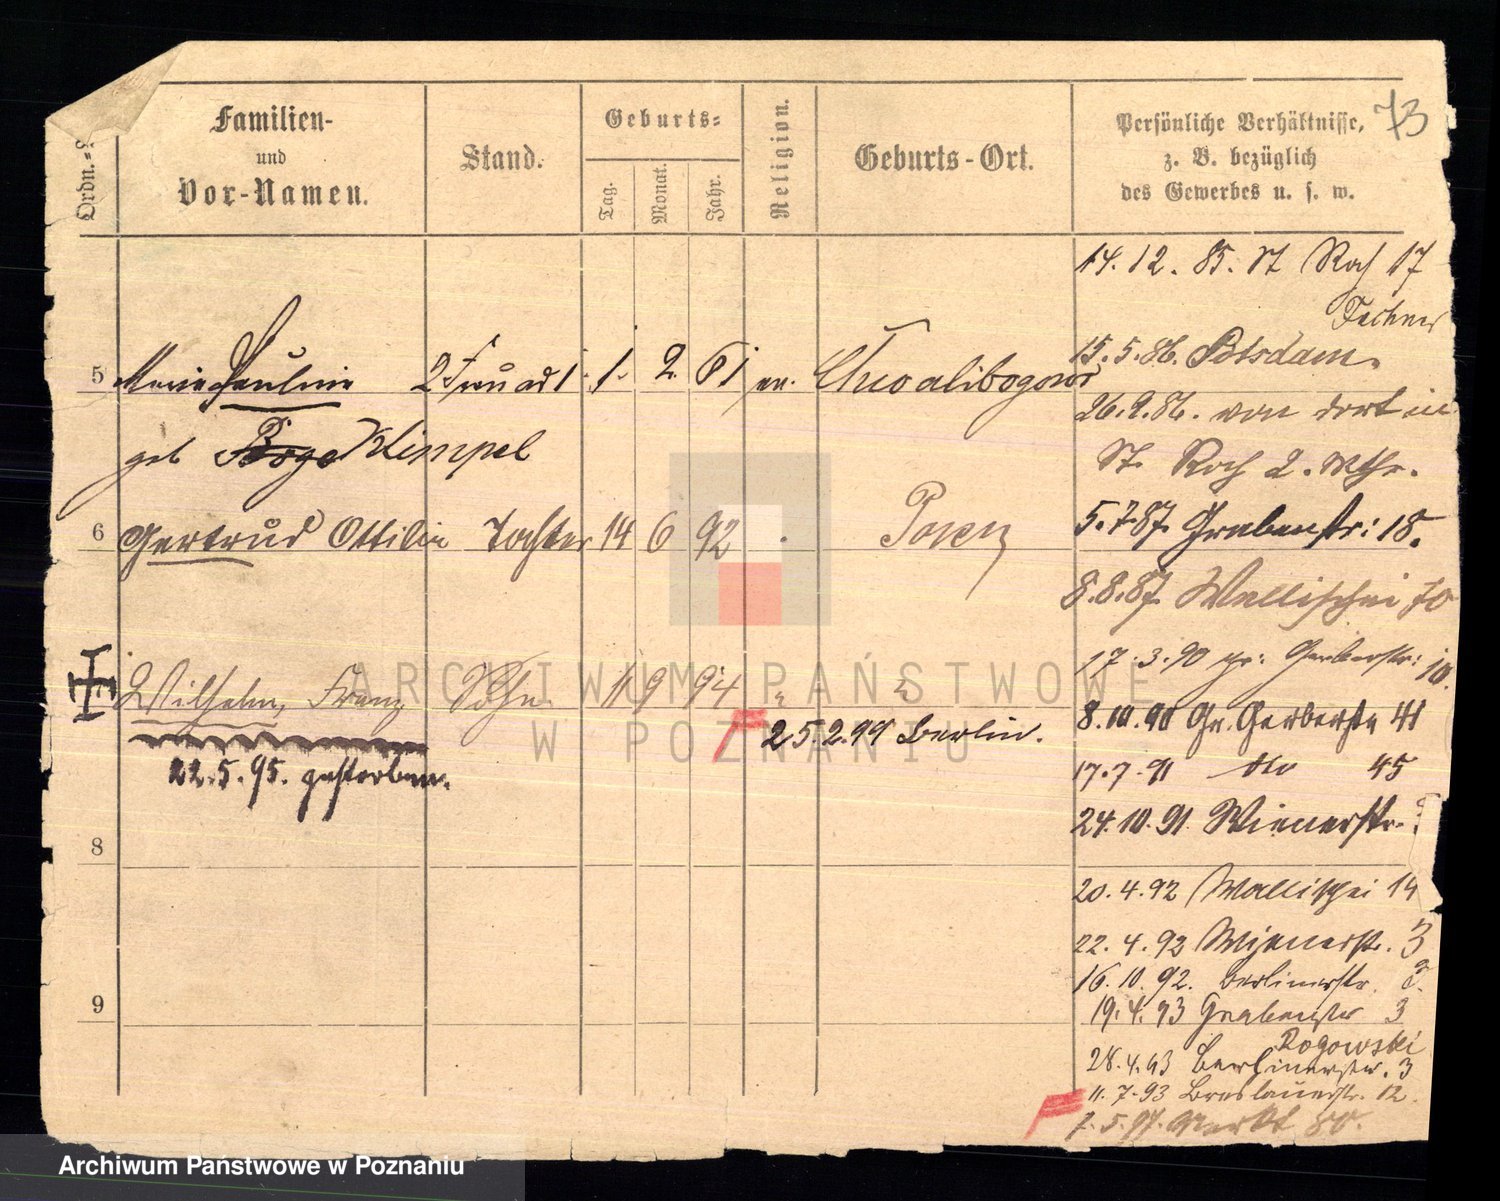 73
Ordn.-
Familien-
und
Vor-Namen.
Stand.
Geburts=
Tag.
Monat.
Jahr.
Religion.
Geburts-Ort.
Persönliche Verhältnisse,
z. B. bezüglich
des Gewerbes u. s. w.
14. 12. 85. St Roch 17
5 Marie Pauline 2 Frau ad 1 1. 2. 61 ev. Chwalibogowo
15. 5. 86. Potsdam.
26. 9. 86. von dort in
geb Klimpel
St. Roch 2.
6 Gertrud Ottilie Tochter 14 6 92 Posen
5. 7. 87. Grabenstr: 18.
8. 8. 87. Wallischei 70
17. 3. 90 gr: Gerberstr: 10.
Wilhelm, Franz Sohn 11 9 94
25. 2. 99 Berlin.
22. 5. 95. gestorben.
8. 10. 90 Gr. Gerberstr 41
17. 7. 91 dto 45
24. 10. 91. Wienerstr.
8
20. 4. 92 Wallischei 14
22. 4. 92 Wienerstr. 3
16. 10. 92. Berlinerstr. 3.
9
19. 4. 93 Grabenstr 3
Rogowski
28. 4. 93 Berlinerstr. 3
11. 7. 93 Breslauerstr. 12.
7. 5. 97. Markt 80.
ARCHIWUM PAŃSTWOWE
W POZNANIU
Archiwum Państwowe w Poznaniu